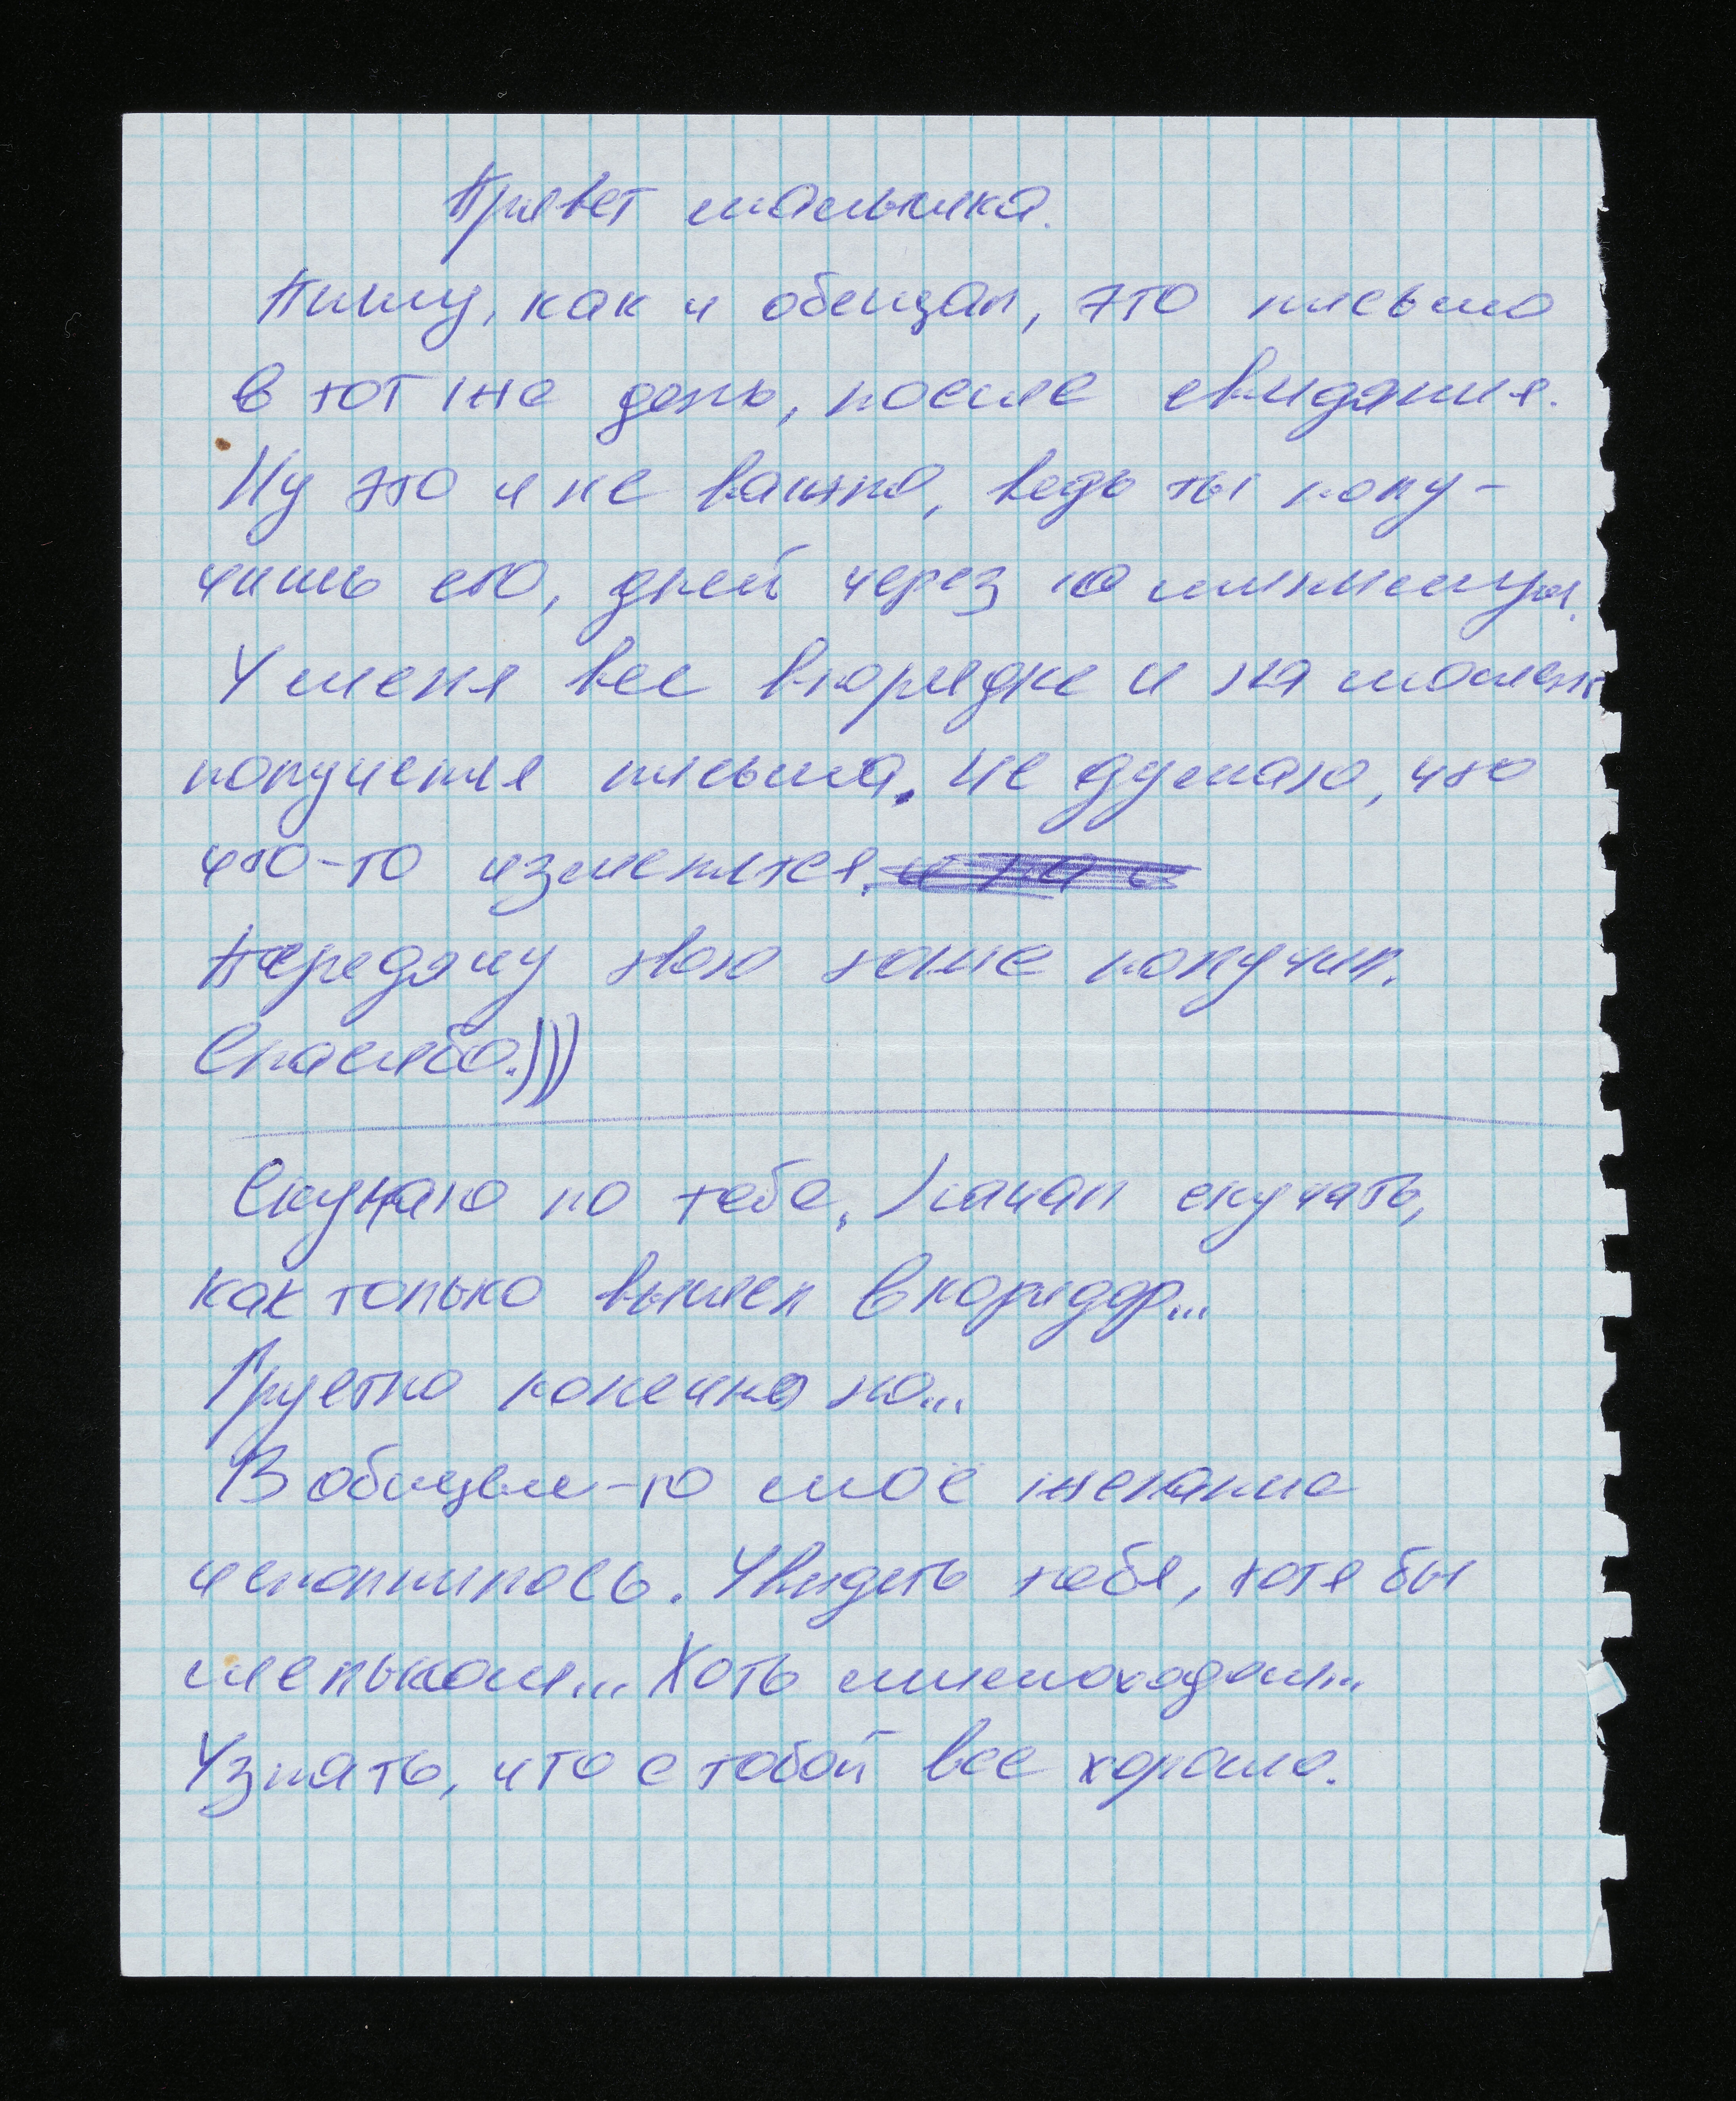 Привет малышка.
Пишу, как и обещал, это письмо
в тот же день, после свидания.
Ну это и не важно, ведь ты полу-
чишь его, дней через по минимуму.
У меня все впорядке и на момент
получения письма. Не думаю, что
что-то изменится.
Передачу твою тоже получил.
Спасибо.)))
Скучаю по тебе. Начал скучать,
как только вышел в коридор...
Грустно конечно но...
В общем-то моё желание
исполнилось. Увидеть тебя, хотя бы
мельком... Хоть мимоходом...
Узнать, что с тобой все хорошо.